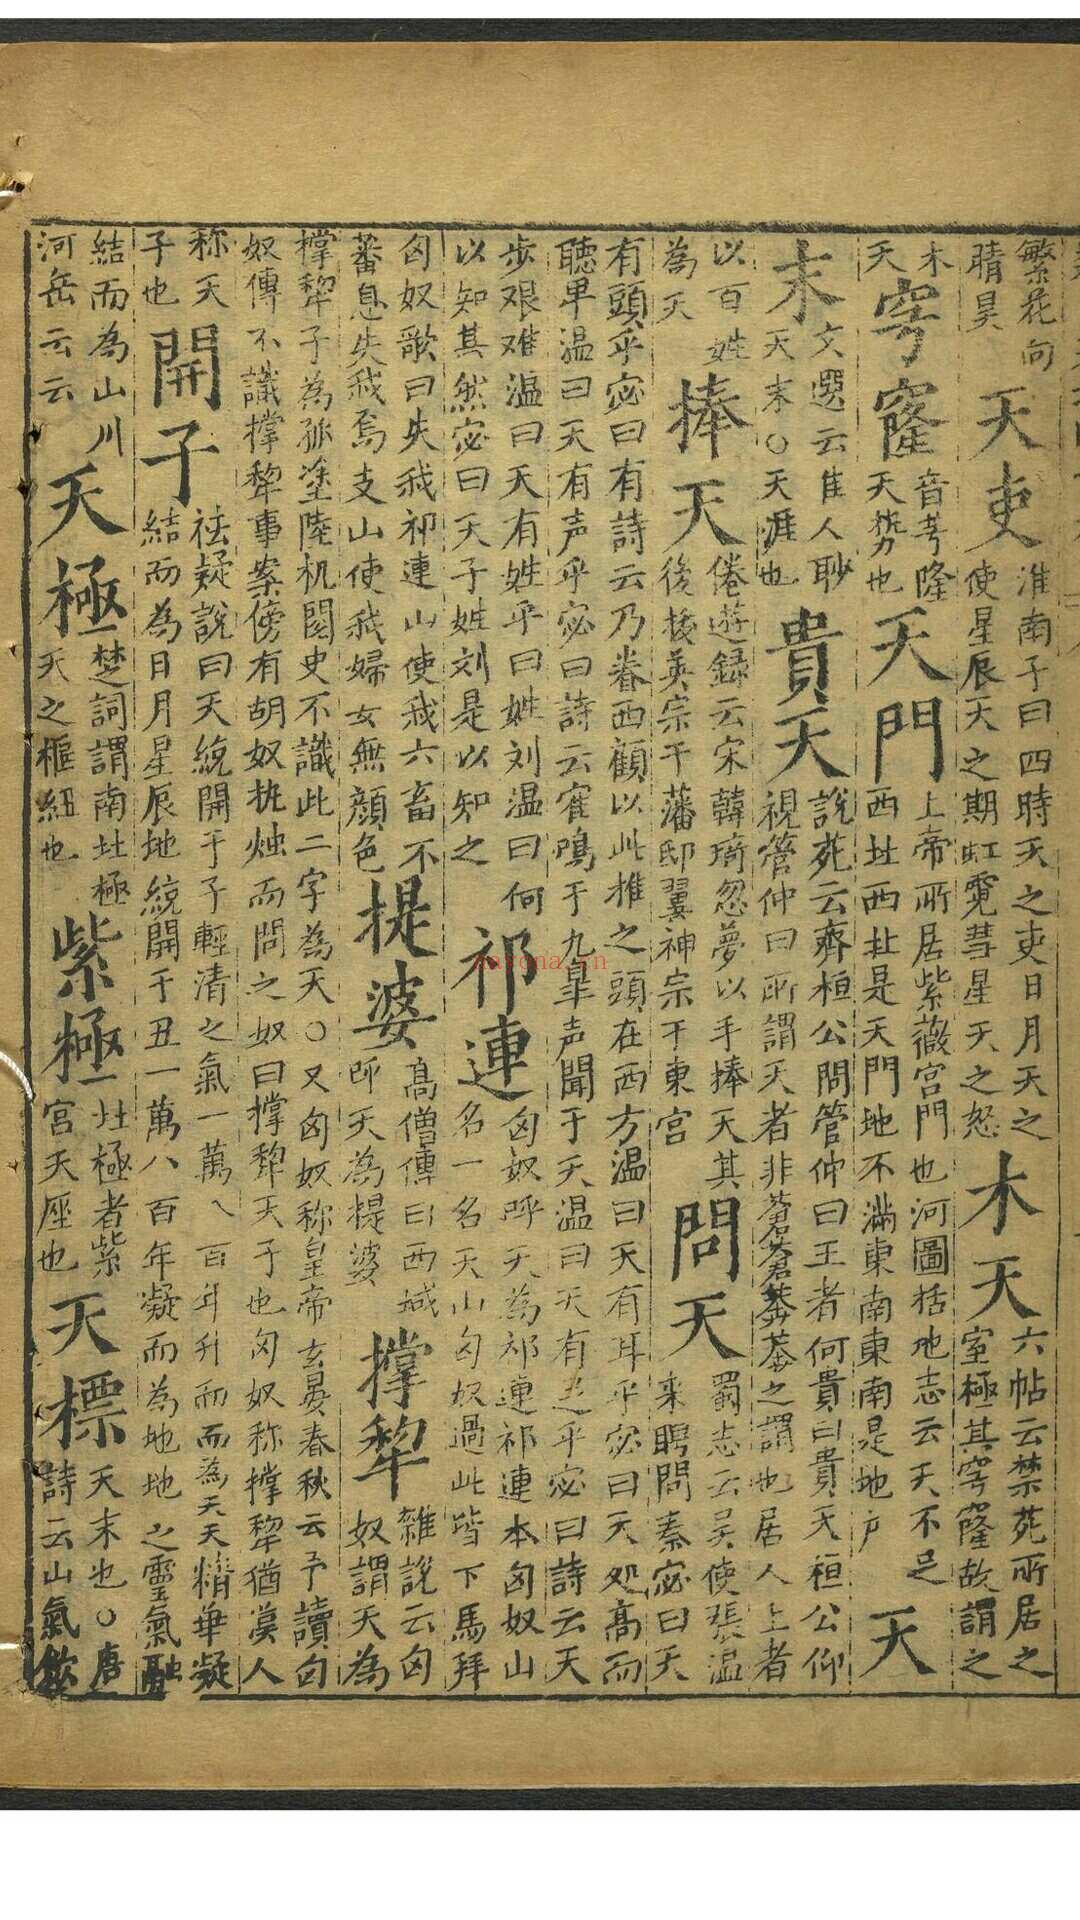 繁花向
晴昊
天吏
淮南子曰四時天之吏日月天之
使星辰天之期虹霓彗星天之怒
木天
六帖云禁苑所居之
室極其穹窿故謂之
木
天
穹窿
音芎隆
天勢也
天門
上帝所居紫薇宮門也河圖括地志云天不足
西北西北是天門地不滿東南東南是地户
天
末
文選云佳人眇
天末○天涯也
貴天
說苑云齊桓公問管仲曰王者何貴曰貴天桓公仰
視管仲曰所謂天者非蒼蒼莽莽之謂也居人上者
以百姓
為天
捧天
倦遊録云宋韓琦忽夢以手捧天其
後授英宗于藩邸翼神宗于東宮
問天
蜀志云吴使張温
来聘問秦宓曰天
有頭乎宓曰有詩云乃眷西顧以此推之頭在西方温曰天有耳乎宓曰天処高而
聽卑温曰天有声乎宓曰詩云寉鳴于九皐声聞于天温曰天有足乎宓曰詩云天
步艰难温曰天有姓乎曰姓刘温曰何
以知其然宓曰天子姓刘是以知之
祁連
匈奴呼天為祁連祁連本匈奴山
名一名天山匈奴過此皆下馬拜
匈奴歌曰失我祁連山使我六畜不
蕃息失我焉支山使我婦女無顔色
提婆
高僧傳曰西域
即天為提婆
撑犂
雜說云匈
奴謂天為
撑犂子為孤塗陸机閱史不識此二字為天○又匈奴称皇帝玄晏春秋云予讀匈
奴傳不識撑犂事案傍有胡奴执烛而問之奴曰撑犂天子也匈奴称撑犂猶漢人
称天
子也
開子
祛疑說曰天統開于子輕清之氣一萬八百年升而而為天天精華凝
結而為日月星辰地統開于丑一萬八百年凝而為地地之靈氣融
結而為山川
河岳云云
天極
楚詞謂南北極
天之樞紐也
紫極
北極者紫
宮天座也
天標
天末也○唐
詩云山氣飲